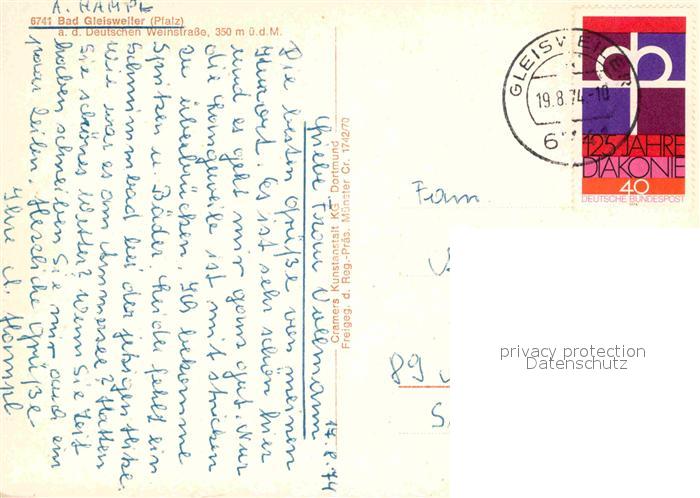 A. HAMPL
6741 Bad Gleisweiler (Pfalz)
a. d. Deutschen Weinstraße, 350 m ü.d.M.
17.8.74
Liebe Frau Vollmann
Die besten Grüße von meinem
Kurort. Es ist sehr schön hier
und es geht mir ganz gut. Nur
die Langeweile ist mit stricken
zu überbrücken. Ich bekomme
Spritzen u. Bäder. Leider fehlt ein
Schwimmbad bei der jetzigen Hitze.
Wie war es am Ammersee? Hatten
Sie schönes Wetter? Wenn Sie Zeit
haben schreiben Sie mir auch ein
paar Zeilen. Herzliche Grüße
Ihre A. Hampl
Cramers Kunstanstalt KG Dortmund
Freigeg. d. Reg.-Präs. Münster Cr. 1742/70
GLEISWEILER
19.8.74-10
6741
125 JAHRE
DIAKONIE
40
DEUTSCHE BUNDESPOST
Fam.
89
privacy protection
Datenschutz